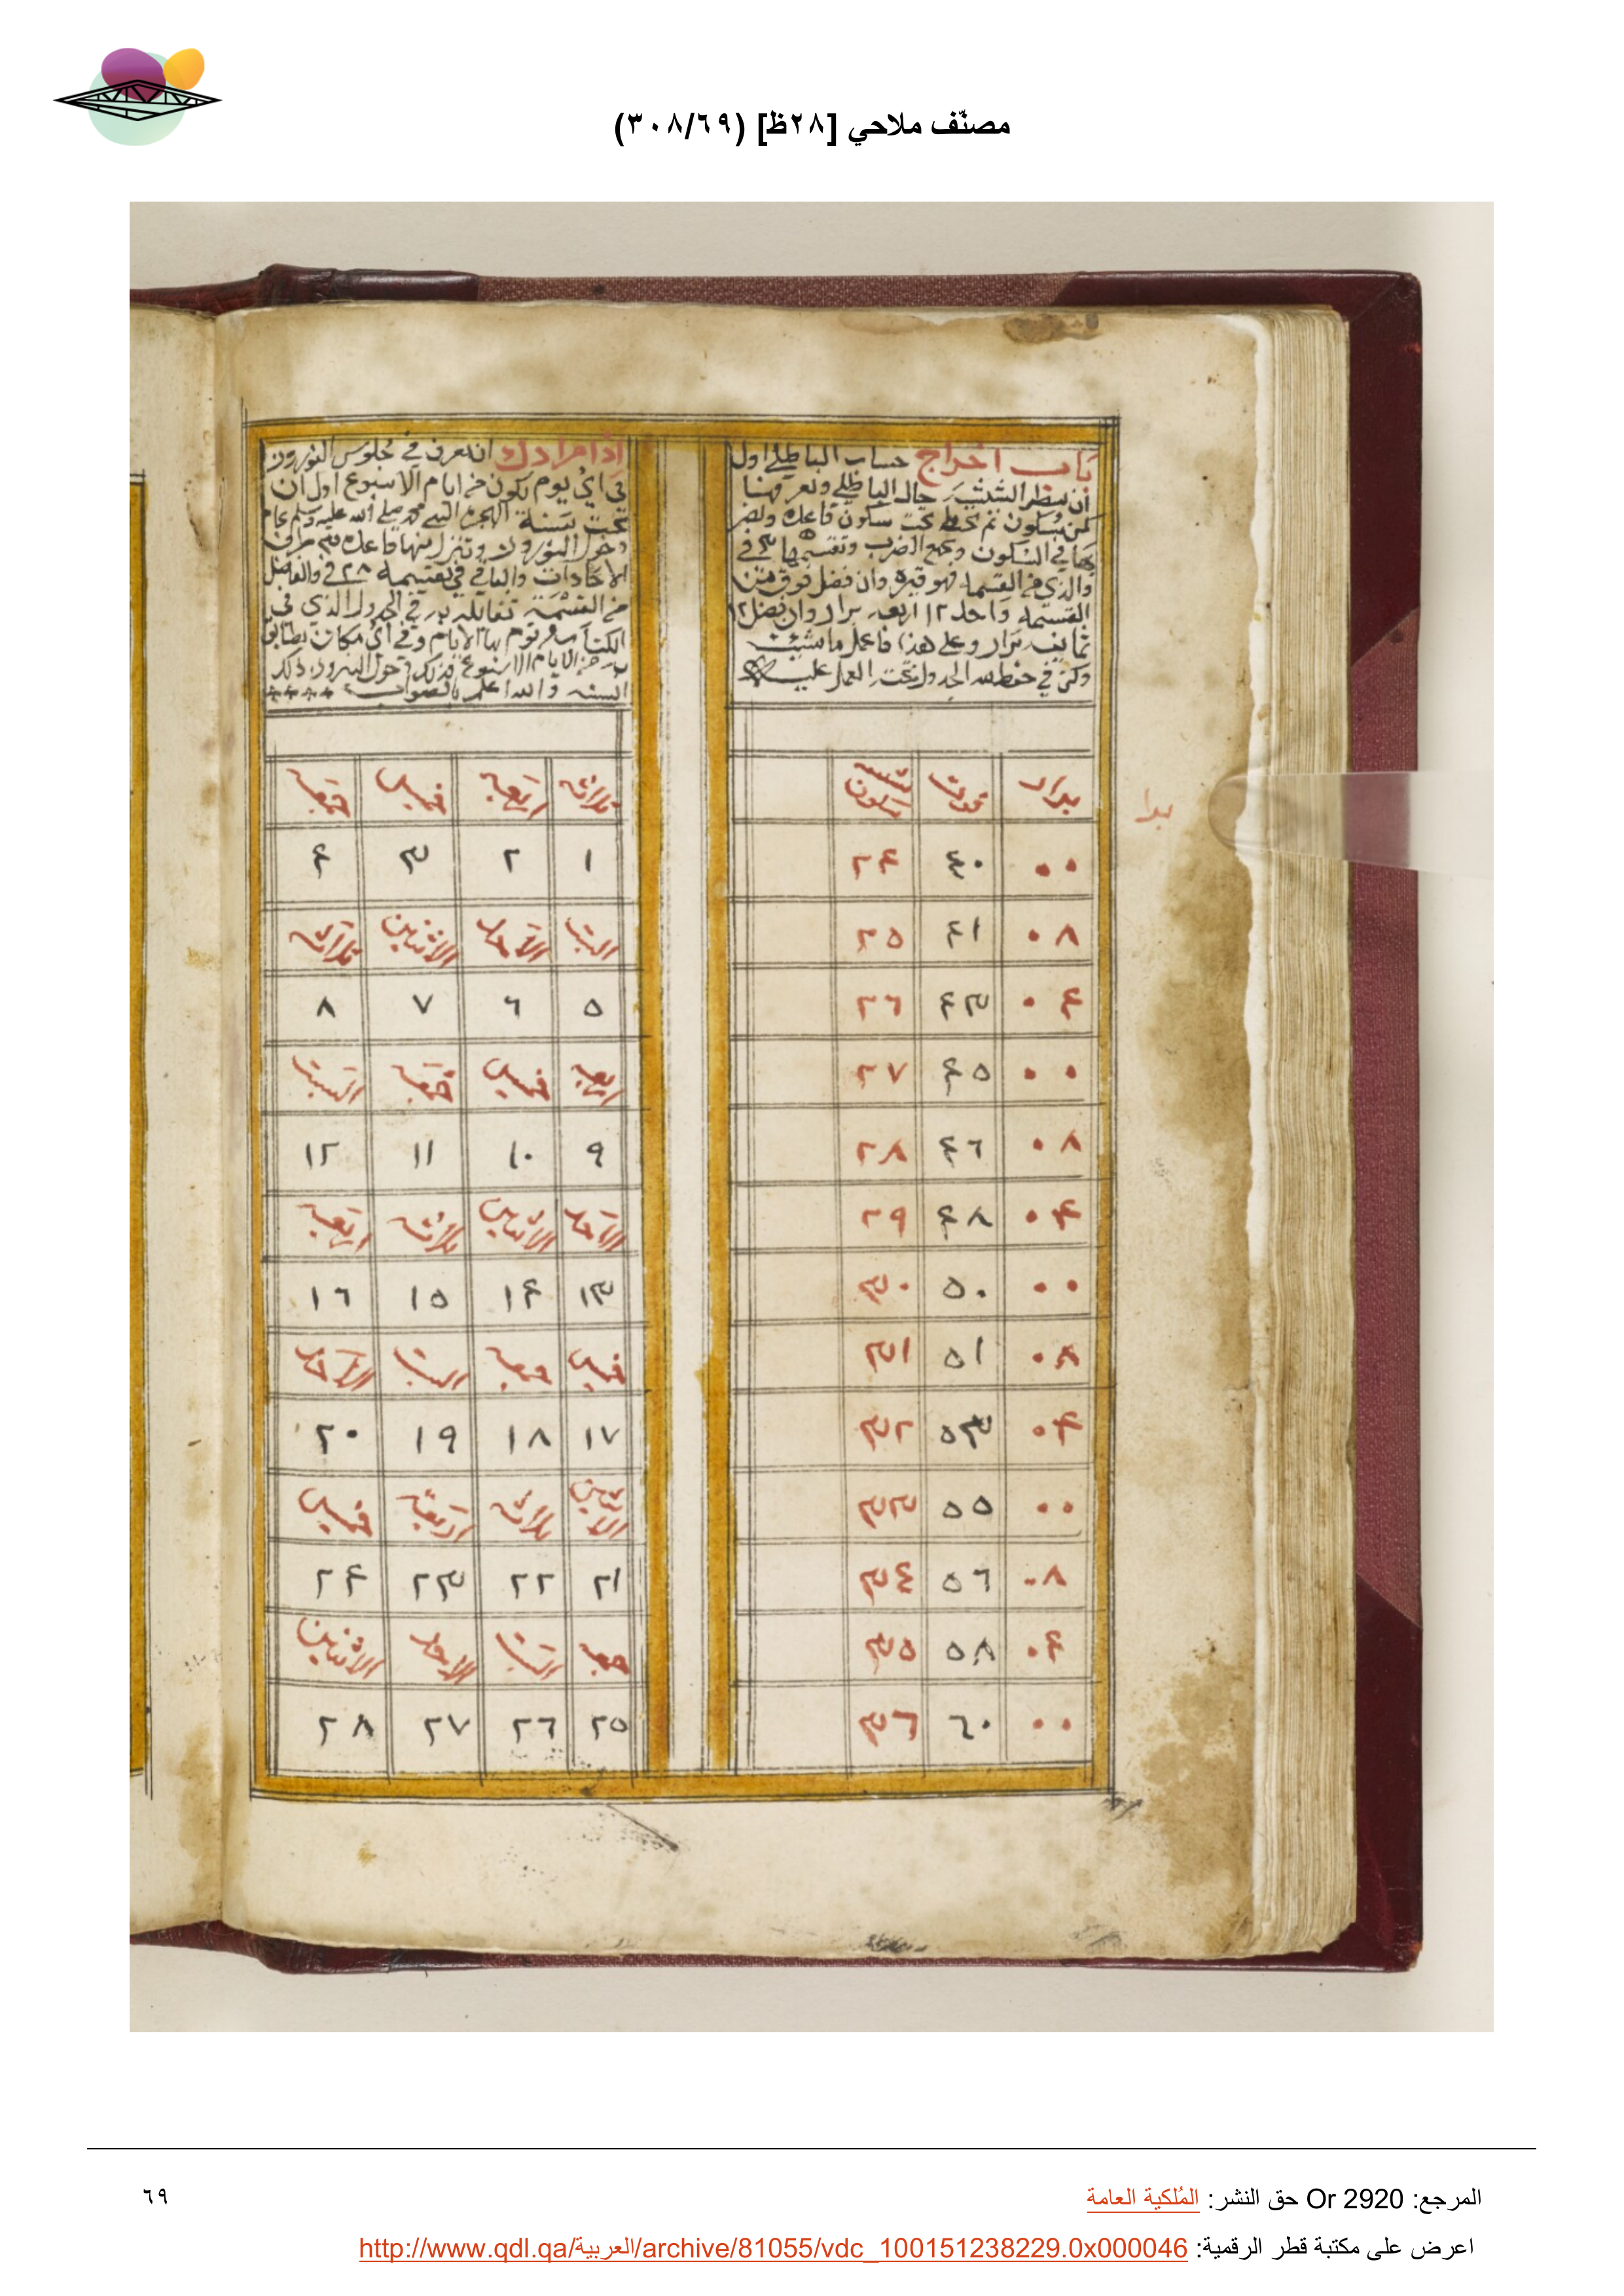 مصنّف ملاحي [٢٨ظ] (٣٠٨/٦٩)
باب اخراج حساب الباطلي اول
ان سطر الشتب حال الباطلي وتعرفها
كمن سكون ثم تحطه تحت سكون قاعده وتضر
بها في السكون وتجمع الضرب وتقسمها ٣ في
والذي من القسمة فهو قيره وان فضل فوق من
القسمة واحد ١٢ اربعه برار وان فضل ٢
ثمانيه برار وعلى هذا فاعمل ما شئت
في حفظ الجدول تحت العمل عليه
برار قوت سكون
٠٠ ٤٠ ٢٤
٠٨ ٤١ ٢٥
٠٤ ٤٣ ٢٦
٠٠ ٤٥ ٢٧
٠٨ ٤٦ ٢٨
٠٤ ٤٨ ٢٩
٠٠ ٥٠ ٣٠
٠٨ ٥١ ٣١
٠٤ ٥٣ ٣٢
٠٠ ٥٥ ٣٣
٠٨ ٥٦ ٣٤
٠٤ ٥٨ ٣٥
٠٠ ٦٠ ٣٦
برا
اذا مرادك ان تعرف في جلوس النوروز
في اي يوم يكون من ايام الاسبوع اول ان
تحت سنة الهجرة النبي محمد صلى الله عليه وسلم عام
دخول النوروز وتنزل منها قاعده من
الاحادات والباقي في تقسيمه ٢٨ في والفاضل
من القسمة تقابله به في الجدول الذي في
الكتاب الايام وفي اي مكان يطابق
من الايام الاسبوع فذلك دخول النيروز ذلك
السنه والله اعلم بالصواب
ثلاثه اربعه خميس جمعه
١ ٢ ٣ ٤
السبت الاحد الاثنين ثلاثه
٥ ٦ ٧ ٨
اربعه خميس جمعه السبت
٩ ١٠ ١١ ١٢
الاحد الاثنين ثلاثه اربعه
١٣ ١٤ ١٥ ١٦
خميس جمعه السبت الاحد
١٧ ١٨ ١٩ ٢٠
الاثنين ثلاثه اربعه خميس
٢١ ٢٢ ٢٣ ٢٤
جمعه السبت الاحد الاثنين
٢٥ ٢٦ ٢٧ ٢٨
المرجع: Or 2920 حق النشر: المُلكية العامة
٦٩
اعرض على مكتبة قطر الرقمية: http://www.qdl.qa/العربية/archive/81055/vdc_100151238229.0x000046